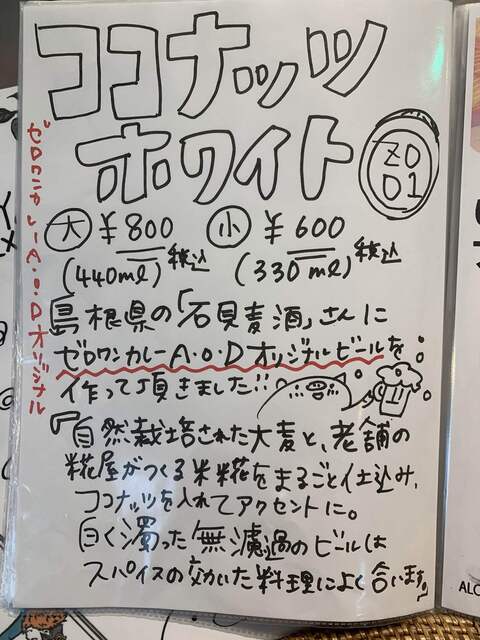 ココナッツ
ホワイト
ZO
01
ゼロワンカレーA・o・Dオリジナル
大 ¥800 小 ¥600
(440ml) 税込 (330ml) 税込
島根県の「石見麦酒」さんに
ゼロワンカレーA・o・Dオリジナルビールを
作って頂きました!!
『自然栽培された大麦と、老舗の
糀屋がつくる米糀をまるごと仕込み、
ココナッツを入れてアクセントに。
白く濁った無濾過のビールは
スパイスの効いた料理によく合います。』
ALC